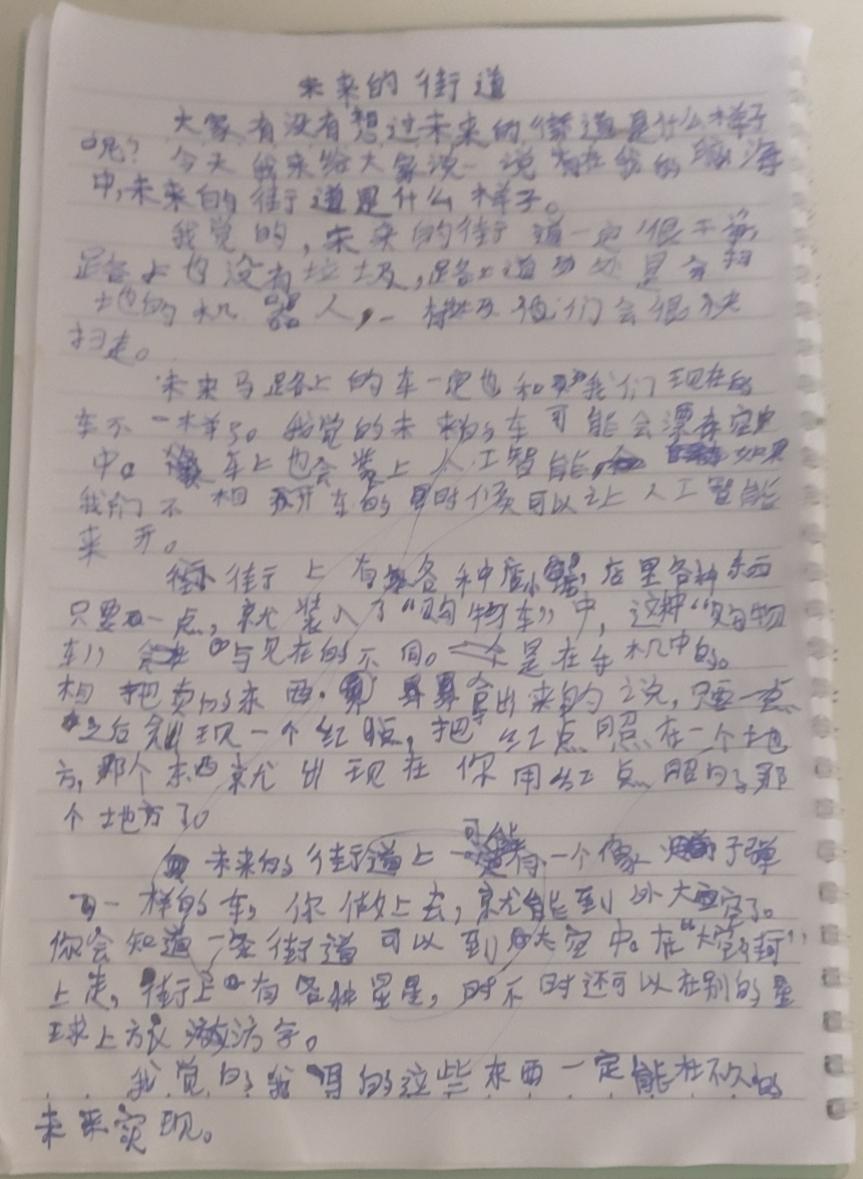 未来的街道
大家有没有想过未来的街道是什么样子
呢?今天我来给大家说一说 在我的 海
中,未来的街道是什么样子。
我觉的,未来的街道一定很干净,
路上也没有垃圾,路上道 处是会扫
地的机器人,一 他们会很快
扫走。
未来马路上的车一定也和 我们现在的
车不一样了。我觉的未来的车可能会漂在空
中。车上也会装上人工智能, 如果
我们不相开车的 时候可以让人工智能
来开。
街上有各种店 ,店里各种东西
只要 一点,就装入了“购物车”中,这种“购物
车” 与见在的不同。 是在手机中的。
相把买的东西 拿出来的说,只要一点
之后 出现一个红点,把红点照在一个地
方,那个东西就出现在你用红点照的那
个地方了。
未来的街道上可能有一个像 子弹
一样的车,你做上去,就能到外太空了。
你会知道一条街道可以到 太空中。在“ ”
上走,街上有各种星星,时不时还可以在别的星
球上方 字。
我觉的我写的这些东西一定能在不久的
未来实现。